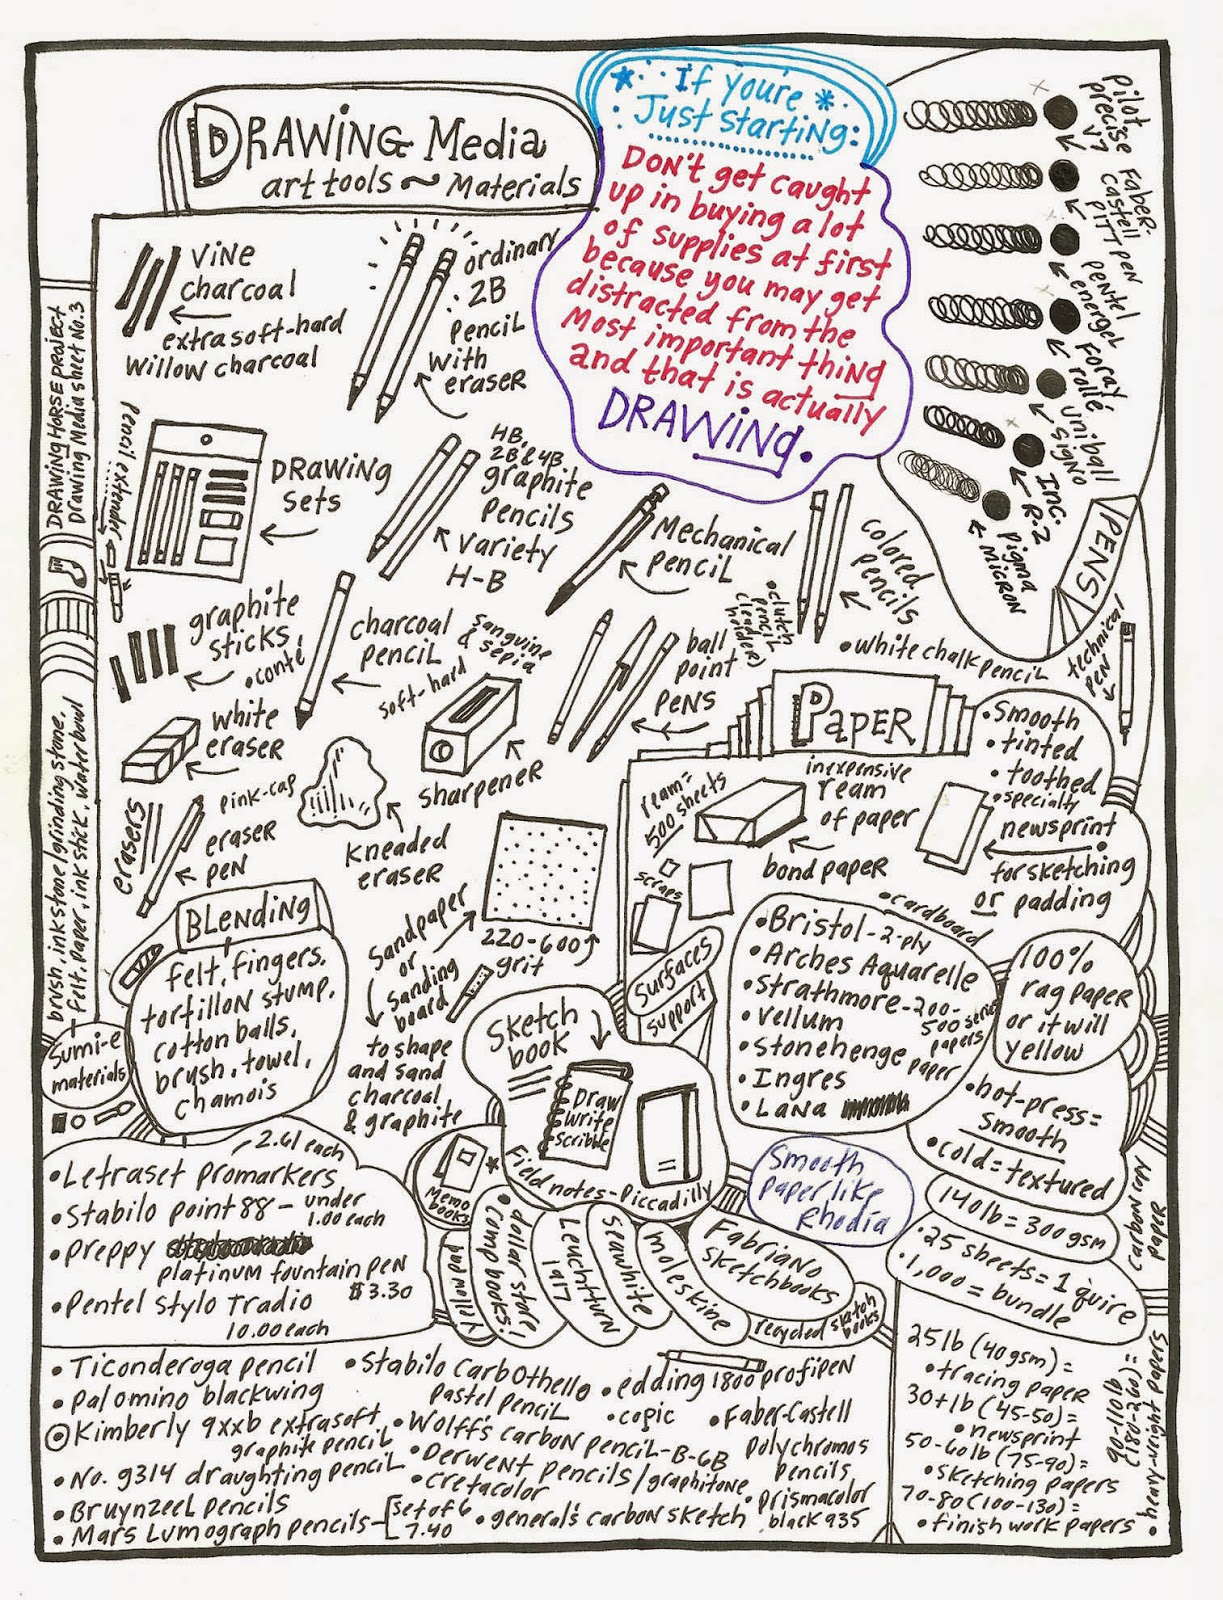 DRAWING Media
art tools ~ Materials
* If you're *
Just Starting:
Don't get caught
up in buying a lot
of supplies at first
because you may get
distracted from the
Most important thing
and that is actually
DRAWING.
pilot
precise
V7
Faber-
Castell
PITT pen
pentel
energel
Foray
rollé
Uniball
Signo
Inc.
R-2
pigma
MICRON
PENS
technical
pen
Vine
charcoal
extra soft-hard
Willow charcoal
ordinary
2B
pencil
with
eraser
DRAWING HORSE PROJECT
Drawing Media sheet No.3
pencil extender
DRAWING
sets
HB,
2B & 4B
graphite
pencils
variety
H-B
Mechanical
pencil
colored
pencils
• clutch
pencil
(lead
holder)
• white chalk pencil
graphite
sticks
• conté
charcoal
pencil
soft-hard
sanguine
& sepia
ball
point
pens
white
eraser
sharpener
erasers
pink-cap
eraser
pen
kneaded
eraser
brush, inkstone/grinding stone,
felt, paper, ink stick, water bowl
Sumi-e
materials
BLENDING
felt, fingers,
tortillon stump,
cotton balls,
brush, towel,
chamois
Sandpaper
or
Sanding
board
to shape
and sand
charcoal
& graphite
220-600
grit
PAPER
ream=
500 sheets
inexpensive
ream
of paper
bond paper
scraps
• smooth
• tinted
• toothed
• specialty
newsprint
for sketching
or padding
• cardboard
surfaces
support
• Bristol-2-ply
• Arches Aquarelle
• Strathmore-200-
500 series
papers
• Vellum
• Stonehenge paper
• Ingres
• Lana
100%
rag paper
or it will
yellow
• hot-press=
smooth
• cold=textured
140lb=300gsm
• 25 sheets=1 quire
• 1,000=bundle
carbon copy
paper
Sketch
book
Draw
Write
Scribble
Field notes-Piccadilly
Memo
books
handmade
• dollar store
comp books!
Leuchtturm
1917
seawhite
moleskine
Fabriano
sketchbooks
recycled sketch
books
Smooth
paper like
Rhodia
2.61 each
• Letraset promarkers
• Stabilo point 88 - under
1.00 each
• preppy
platinum fountain pen
$3.30
• Pentel Stylo Tradio
10.00 each
• Ticonderoga pencil
• palomino blackwing
Kimberly 9xxb extrasoft
graphite pencil
• No. 9314 draughting pencil
• Bruynzeel pencils
• Mars Lumograph pencils-
[set of 6
7.40
• Stabilo CarbOthello
pastel pencil
• Wolff's carbon pencil-B-6B
• Derwent pencils/graphitone
• cretacolor
• general's carbon sketch
• edding 1800 profipen
• copic
• Faber-Castell
polychromos
pencils
• prismacolor
black 935
25lb (40gsm)=
• tracing paper
30+lb (45-50)=
• newsprint
50-60lb (75-90)=
• sketching papers
70-80 (100-130)=
• finish work papers
90-110lb
(180-260)=
• heavy-weight papers